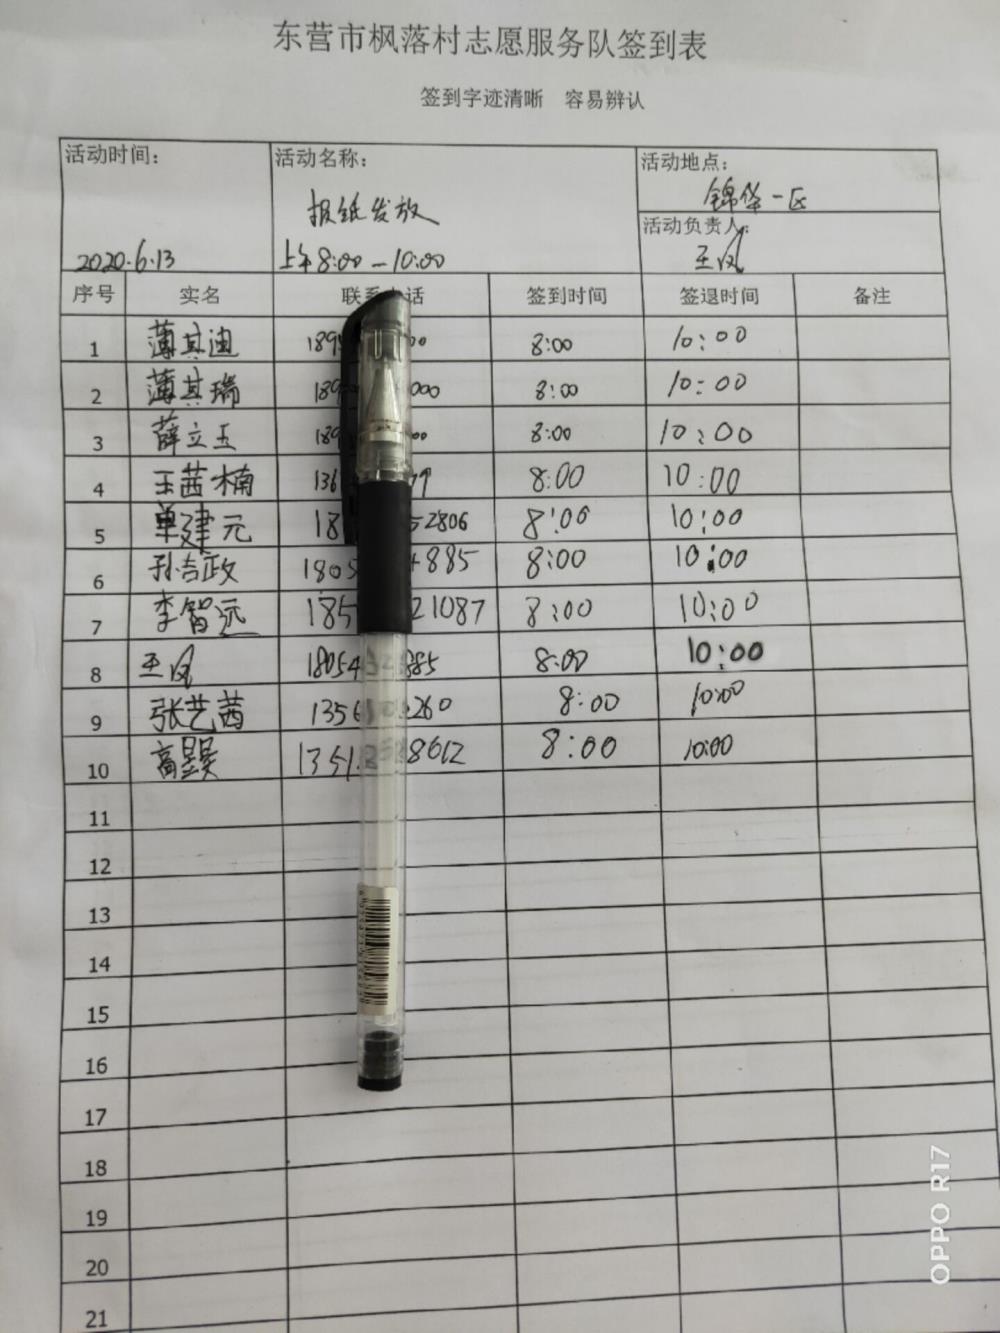 东营市枫落村志愿服务队签到表
签到字迹清晰 容易辨认
活动时间: 活动名称: 活动地点:
报纸发放 锦华一区
活动负责人:
2020.6.13 上午8:00-10:00 王凤
序号 实名 联系 话 签到时间 签退时间 备注
1 薄其迪 189 00 8:00 10:00
2 薄其瑞 189 000 8:00 10:00
3 薛立五 189 00 8:00 10:00
4 王茜楠 136 79 8:00 10:00
5 单建元 18 2806 8:00 10:00
6 孙吉政 1805 4885 8:00 10:00
7 李智远 185 21087 8:00 10:00
8 王凤 18054 885 8:00 10:00
9 张艺茜 1356 260 8:00 10:00
10 高 1351 8612 8:00 10:00
11
12
13
14
15
16
17
18
19
20
21
OPPO R17